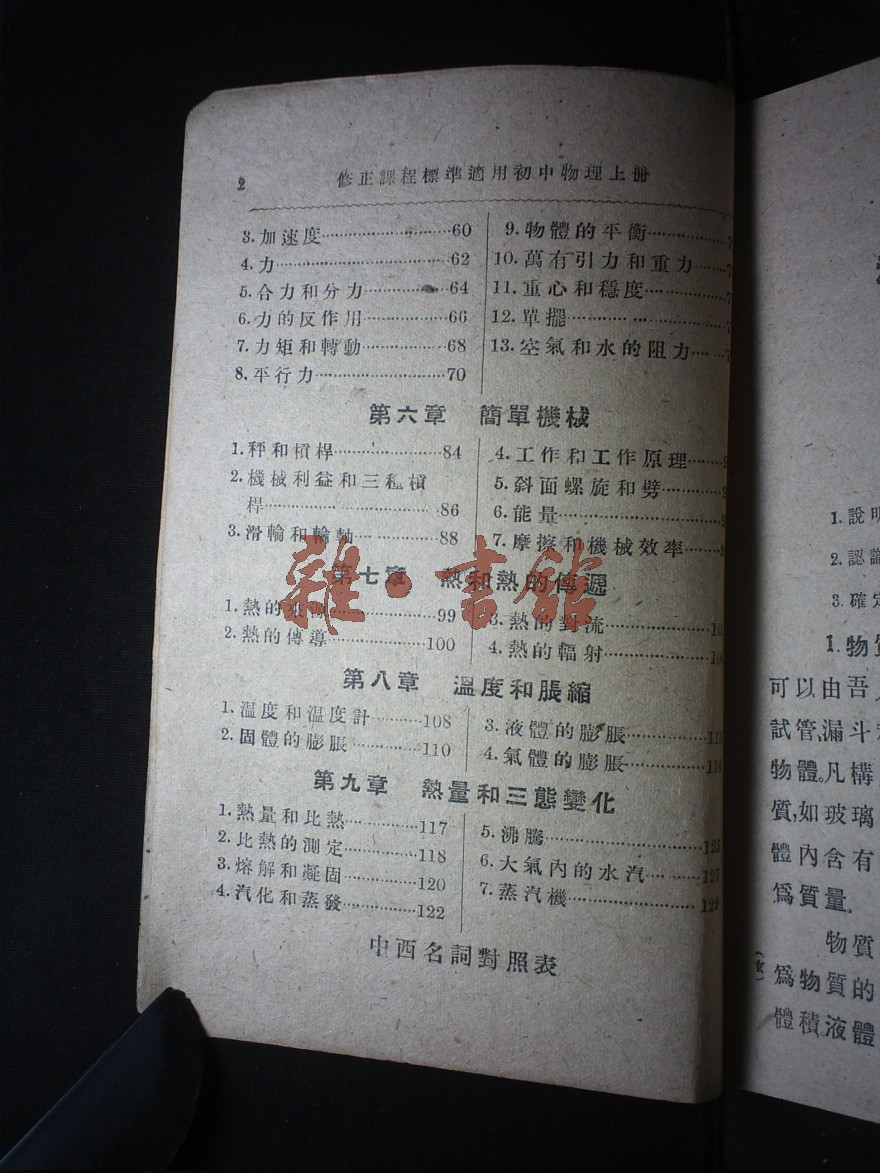 2
修正課程標準適用初中物理上册
3.加速度……60
4.力……62
5.合力和分力……64
6.力的反作用……66
7.力矩和轉動……68
8.平行力……70
9.物體的平衡……7
10.萬有引力和重力……7
11.重心和穩度……7
12.單擺……7
13.空氣和水的阻力……7
第六章 簡單機械
1.秤和槓桿……84
2.機械利益和三種槓
桿……86
3.滑輪和輪軸……88
4.工作和工作原理……9
5.斜面螺旋和劈……9
6.能量……9
7.摩擦和機械效率……9
第七章 熱和熱的傳遞
1.熱的來源……99
2.熱的傳導……100
3.熱的對流……10
4.熱的輻射……10
第八章 溫度和脹縮
1.溫度和溫度計……108
2.固體的膨脹……110
3.液體的膨脹……113
4.氣體的膨脹……114
第九章 熱量和三態變化
1.熱量和比熱……117
2.比熱的測定……118
3.熔解和凝固……120
4.汽化和蒸發……122
5.沸騰……125
6.大氣內的水汽……127
7.蒸汽機……129
中西名詞對照表
雜·書館
1.說明
2.認識
3.確定
1.物質
可以由吾人
試管,漏斗
物體。凡構
質,如玻璃
體內含有
爲質量。
物質
爲物質的
體積。液體